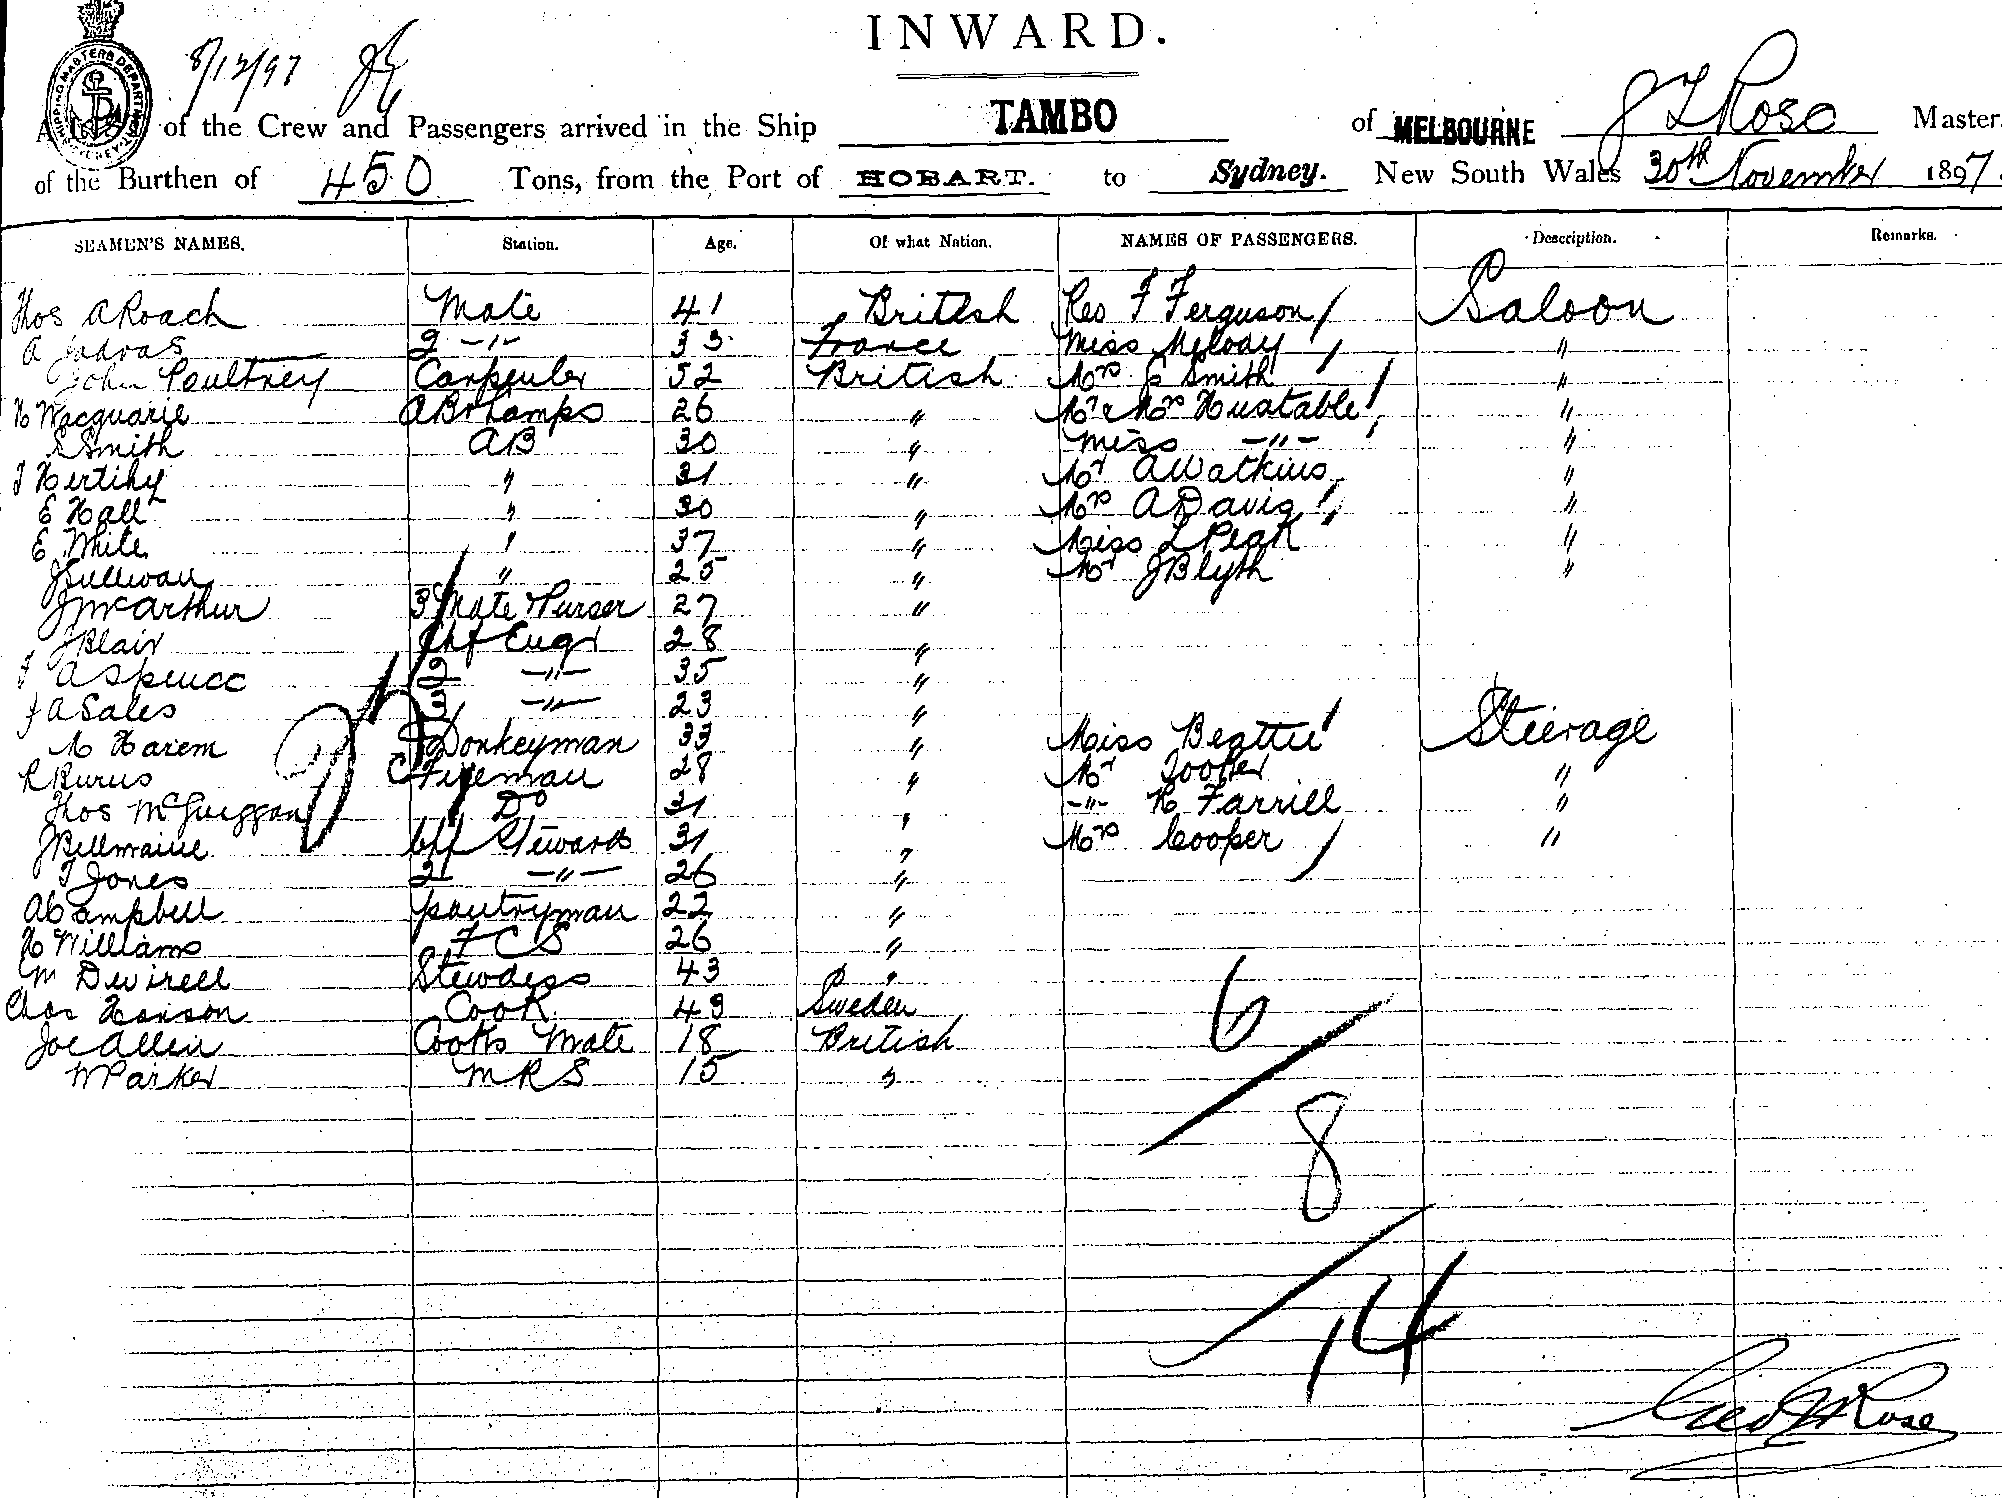 INWARD.
8/12/97
of the Crew and Passengers arrived in the Ship TAMBO of MELBOURNE Rose Master.
of the Burthen of 450 Tons, from the Port of HOBART. to Sydney. New South Wales 30th November 1897.
SEAMEN'S NAMES. Station. Age. Of what Nation. NAMES OF PASSENGERS. Description. Remarks.
Thos A Roach Mate 41 British F Ferguson Saloon
A 2 -"- 33 France Miss Melody "
John Poultney Carpenter 52 British Mrs Smith "
H Macquarie AB & Lamps 26 " Mr & Mrs Huxtable "
S Smith AB 30 " Miss -"- "
T Hertihy " 31 " Mr A Watkins "
E Hall " 30 " Mrs A Davis "
E White " 37 " Miss L Peak "
J Sullivan " 25 " Mr J Blyth "
J McArthur 3 Mate & Purser 27 "
J Blair Chf Engr 28 "
A Spence 2 -"- 35 "
A Sales 3 -"- 23 "
M Harem Donkeyman 33 " Miss Beattie Steerage
R Burns Fireman 28 " Mr "
Thos McGuiggan Do 31 " -"- H Farrill "
J Bellmaine Chf Steward 31 " Mrs Cooper "
T Jones 2 -"- 26 "
A Campbell pantryman 22 "
H Williams F C S 26 "
M Stewdess 43 "
Chas Hanson Cook 43 Sweden
Joe Allen Cooks Mate 18 British
W Parker M R S 15 "
6
8
14
Rose